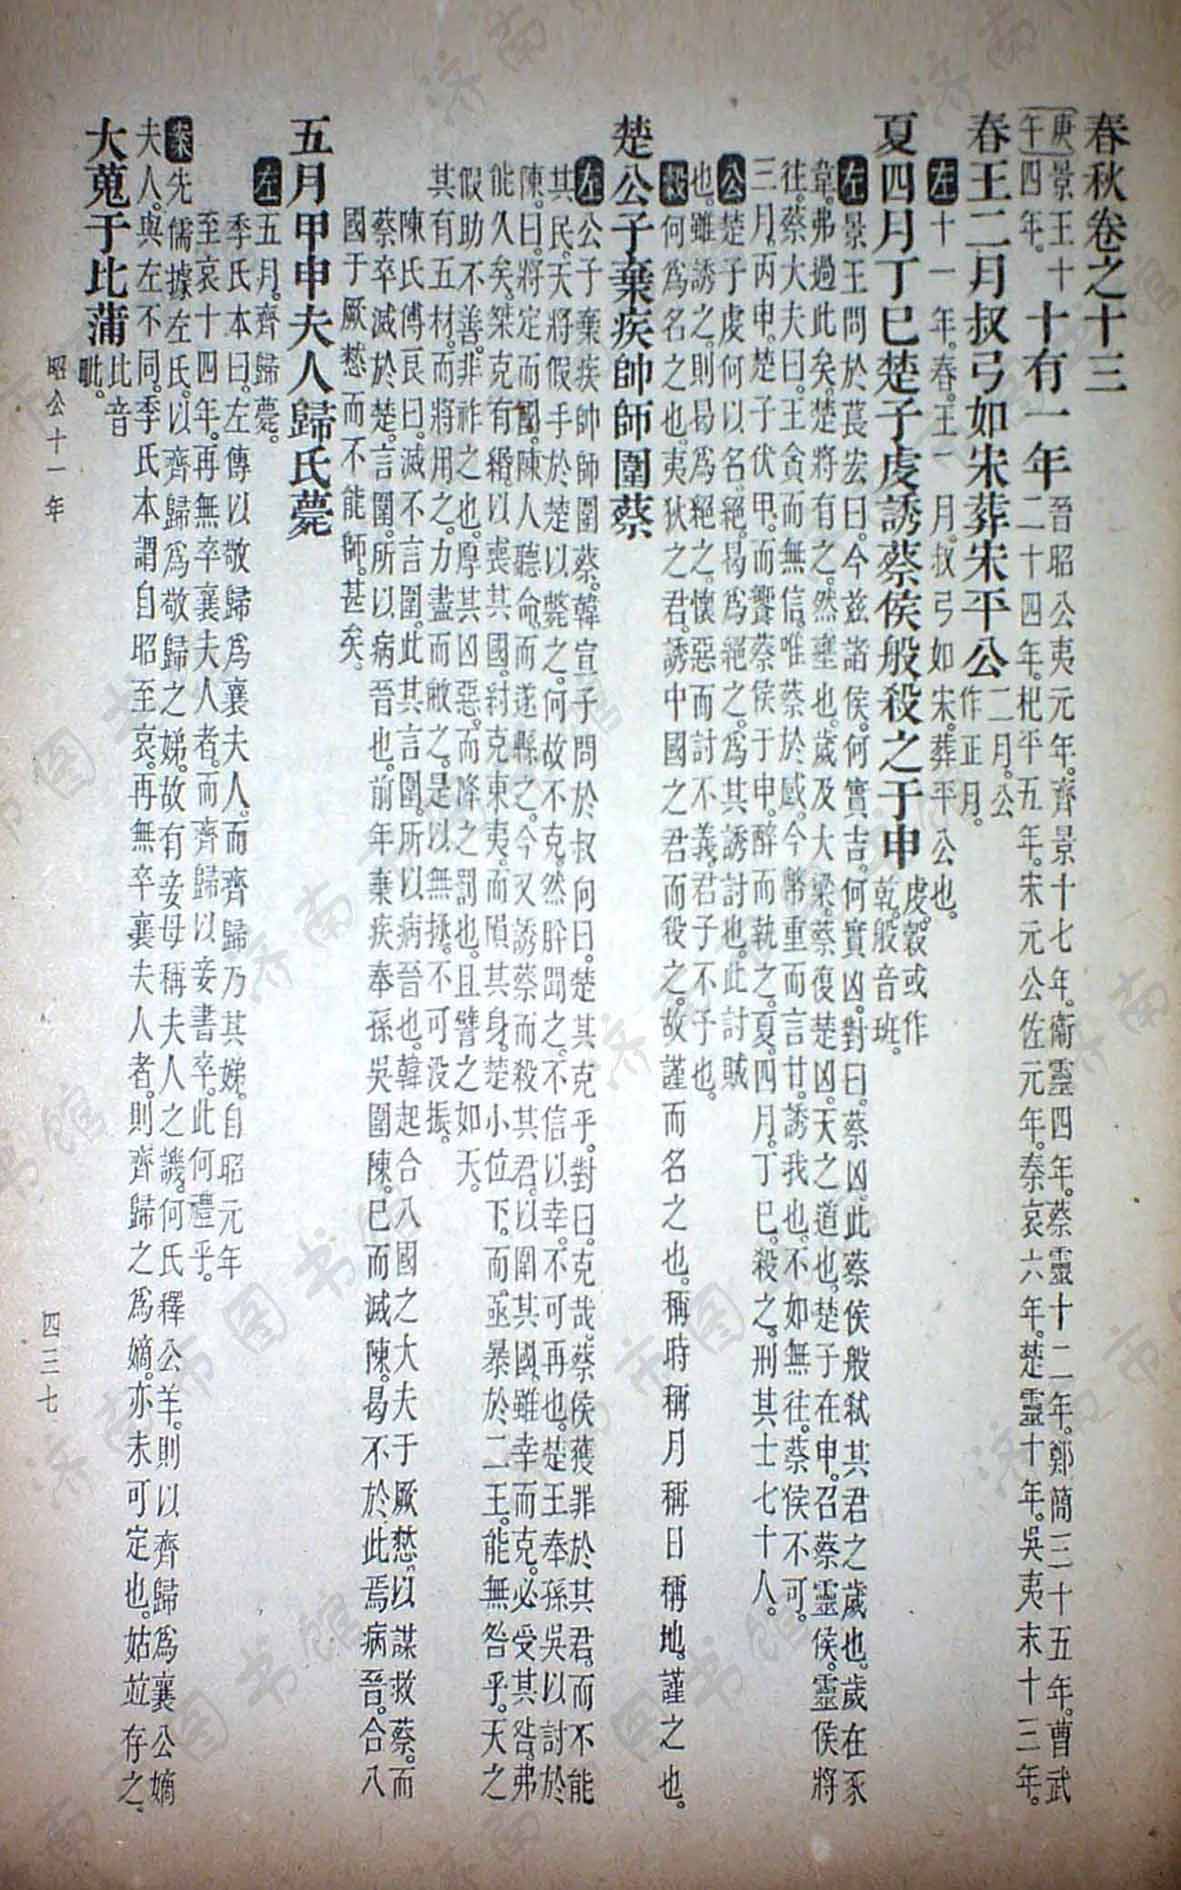 春秋卷之十三
庚午
景王十四年。
十有一年
晉昭公夷元年。齊景十七年。衞靈四年。蔡靈十二年。鄭簡三十五年。曹武
二十四年。杞平五年。宋元公佐元年。秦哀六年。楚靈十年。吳夷末十三年。
春王二月叔弓如宋葬宋平公
二月。公
作正月。
左十一年。春。王二月。叔弓如宋。葬平公也。
夏四月丁巳楚子虔誘蔡侯般殺之于申
虔。穀或作
乾。般音班。
左景王問於萇宏曰。今兹諸侯。何實吉。何實凶。對曰。蔡凶。此蔡侯般弒其君之歲也。歲在豕
韋。弗過此矣。楚將有之。然壅也。歲及大梁。蔡復楚凶。天之道也。楚子在申。召蔡靈侯。靈侯將
往。蔡大夫曰。王貪而無信。唯蔡於感。今幣重而言甘。誘我也。不如無往。蔡侯不可。
三月。丙申。楚子伏甲。而饗蔡侯于申。醉而執之。夏。四月。丁巳。殺之。刑其士七十人。
公楚子虔何以名。絕。曷爲絕之。爲其誘討也。此討賊
也。雖誘之。則曷爲絕之。懷惡而討不義。君子不予也。
穀何爲名之也。夷狄之君。誘中國之君而殺之。故謹而名之也。稱時稱月稱日稱地。謹之也。
楚公子棄疾帥師圍蔡
左公子棄疾帥師圍蔡。韓宣子問於叔向曰。楚其克乎。對曰。克哉。蔡侯獲罪於其君。而不能
其民。天將假手於楚以斃之。何故不克。然肸聞之。不信以幸。不可再也。楚王奉孫吳以討於
陳。曰。將定而國。陳人聽命。而遂縣之。今又誘蔡而殺其君。以圍其國。雖幸而克。必受其咎。弗
能久矣。桀克有緡。以喪其國。紂克東夷。而隕其身。楚小位下。而亟暴於二王。能無咎乎。天之
假助不善。非祚之也。厚其凶惡。而降之罰也。且譬之如天。
其有五材。而將用之。力盡而敝之。是以無拯。不可没振。
陳氏傅良曰。滅不言圍。此其言圍。所以病晉也。韓起合八國之大夫于厥憖。以謀救蔡。而
蔡卒滅於楚。言圍。所以病晉也。前年棄疾奉孫吳圍陳。已而滅陳。曷不於此焉病晉。合八
國于厥憖而不能師。甚矣。
五月甲申夫人歸氏薨
左五月。齊歸薨。
季氏本曰。左傳以敬歸爲襄夫人。而齊歸乃其娣。自昭元年
至哀十四年。再無卒襄夫人者。而齊歸以妾書卒。此何禮乎。
案先儒據左氏。以齊歸爲敬歸之娣。故有妾母稱夫人之譏。何氏釋公羊。則以齊歸爲襄公嫡
夫人。與左不同。季氏本謂自昭至哀。再無卒襄夫人者。則齊歸之爲嫡。亦未可定也。姑竝存之。
大蒐于比蒲
比音
毗。
昭公十一年
四三七